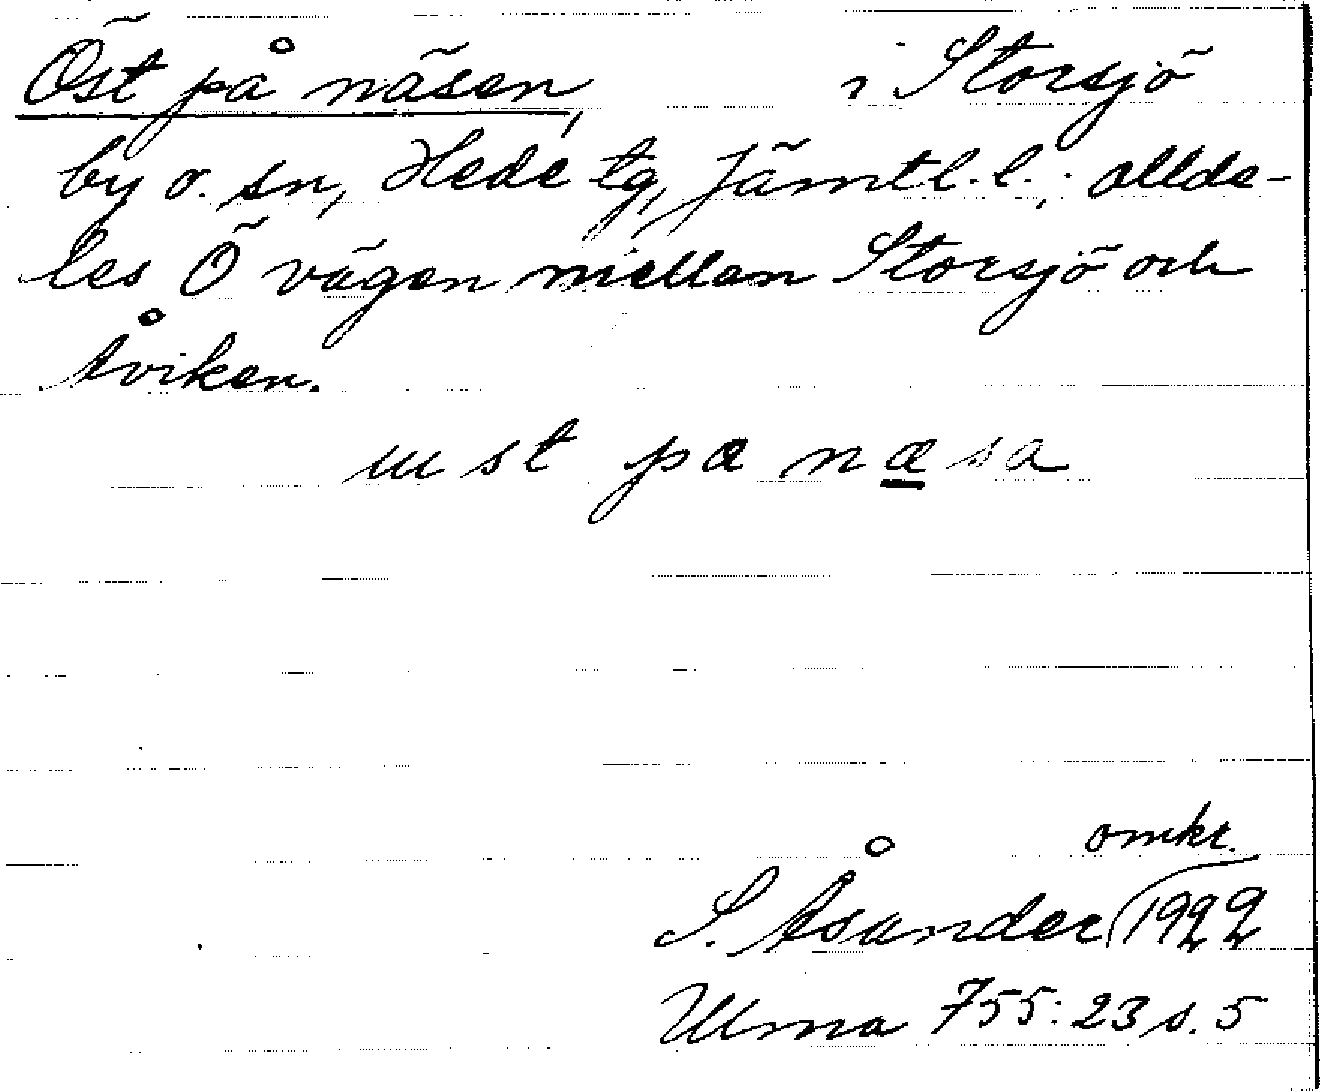 Öst på näsen, i Storsjö
by o. sn, Hede tg, Jämtl. l.; allde-
les Ö vägen mellan Storsjö och
Åviken.
ɯst pa næsa
omkr.
S. Åsander 1922
Ulma 755:23 s. 5